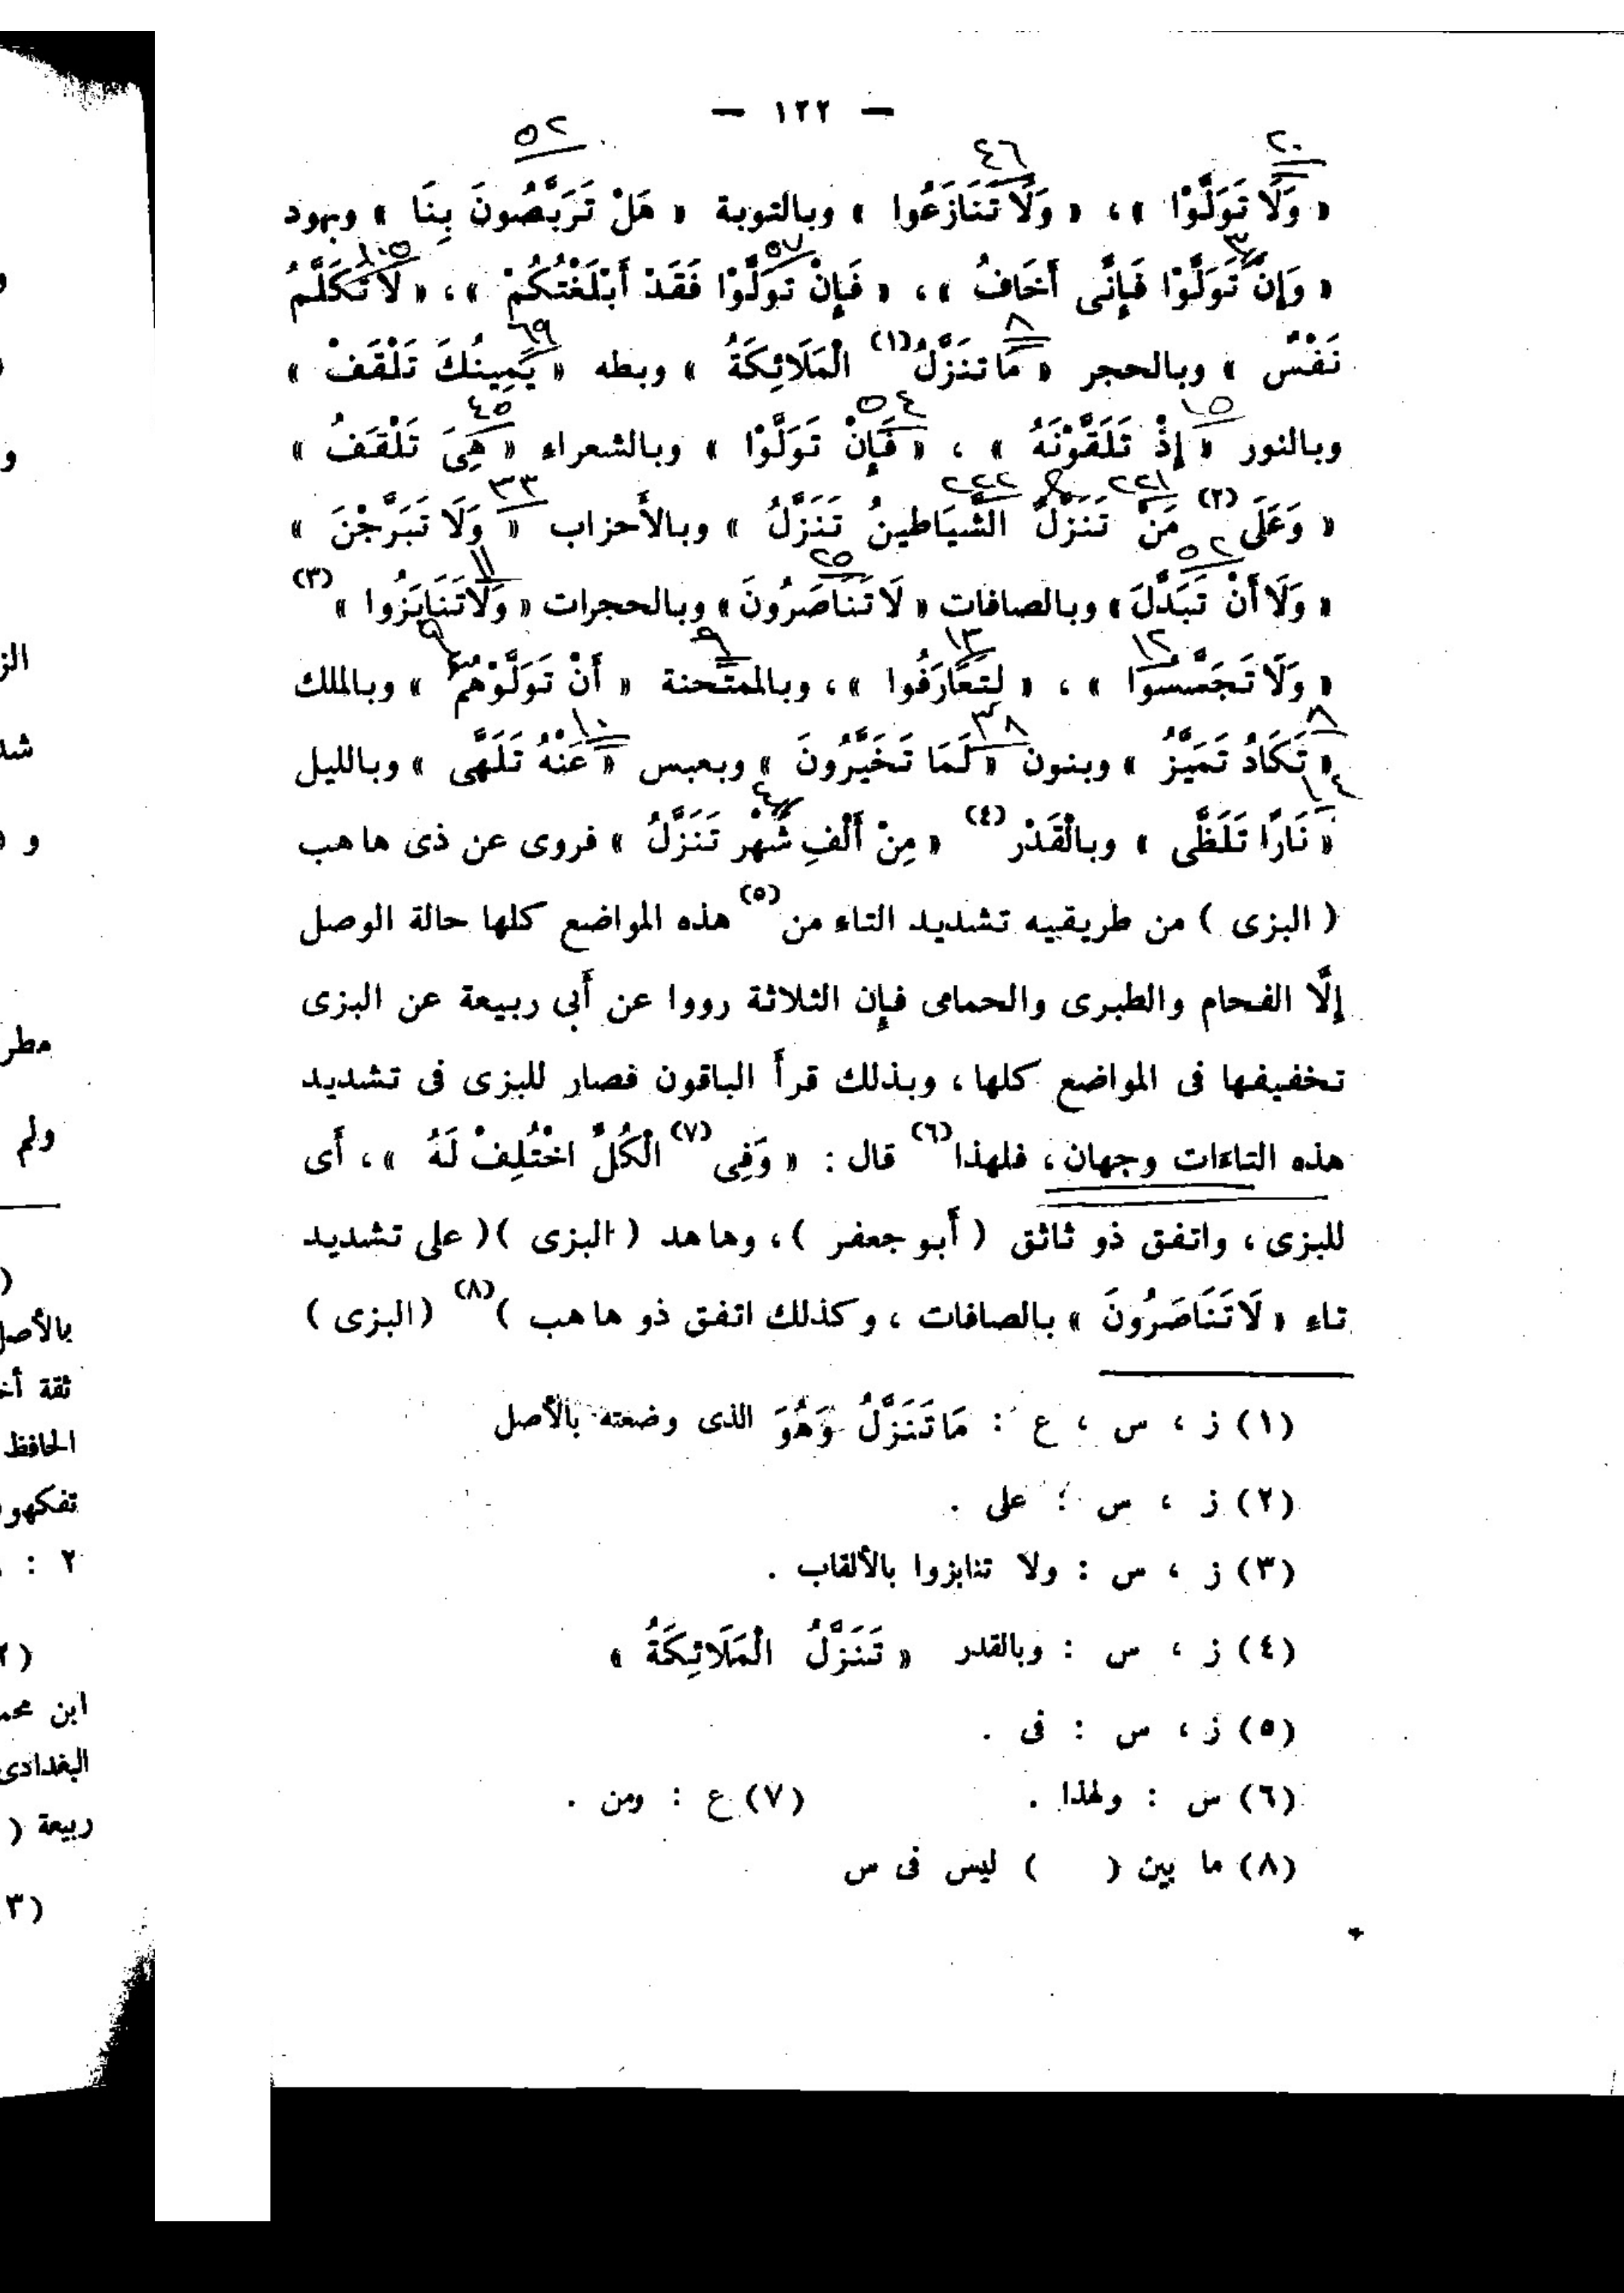 — ١٢٢ —
٥٢
٤٦
٢٠
« وَلَا تَوَلَّوْا » ، « وَلَا تَنَازَعُوا » وبالتوبة « هَلْ تَرَبَّصُونَ بِنَا » وبهود
١٠٥
٥٧
٣
« وَإِنْ تَوَلَّوْا فَإِنِّى أَخَافُ » ، « فَإِنْ تَوَلَّوْا فَقَدْ أَبْلَغْتُكُمْ » ، « لَا تَكَلَّمُ
٦٩
٨
نَفْسٌ » وبالحجر « مَا تَنَزَّلُ (١) الْمَلَائِكَةُ » وبطه « يَمِينُكَ تَلْقَفْ »
٤٥
٥٤
١٥
وبالنور « إِذْ تَلَقَّوْنَهُ » ، « فَإِنْ تَوَلَّوْا » وبالشعراء « هِىَ تَلْقَفُ »
٣٣
٢٢٢
٢٢١
« وَعَلَى (٢) مَنْ تَنَزَّلُ الشَّيَاطِينُ تَنَزَّلُ » وبالأَحزاب « وَلَا تَبَرَّجْنَ »
١١
٢٥
٥٢
« وَلَا أَنْ تَبَدَّلَ » وبالصافات « لَا تَنَاصَرُونَ » وبالحجرات « وَلَا تَنَابَزُوا » (٣)
٩
١٣
١٢
« وَلَا تَجَسَّسُوا » ، « لِتَعَارَفُوا » ، وبالممتحنة « أَنْ تَوَلَّوْهُمْ » وبالملك
١٠
٣٨
٨
« تَكَادُ تَمَيَّزُ » وبنون « لَمَا تَخَيَّرُونَ » وبعبس « عَنْهُ تَلَهَّى » وبالليل
٤
١٤
« نَارًا تَلَظَّى » وبالْقَدْر (٤) « مِنْ أَلْفِ شَهْر تَنَزَّلُ » فروى عن ذى ها هب
( البزى ) من طريقيه تشديد التاء من (٥) هذه المواضع كلها حالة الوصل
إلَّا الفحام والطبرى والحمامى فإِن الثلاثة رووا عن أَبى ربيعة عن البزى
تخفيفها فى المواضع كلها ، وبذلك قرأَ الباقون فصار للبزى فى تشديد
هذه التاءات وجهان ، فلهذا (٦) قال : « وَفِى (٧) الْكُلِّ اخْتُلِفْ لَهُ » ، أَى
للبزى ، واتفق ذو ثاثق ( أَبو جعفر ) ، وها هد ( البزى ) ( على تشديد
تاء « لَا تَنَاصَرُونَ » بالصافات ، وكذلك اتفق ذو ها هب ) (٨) ( البزى )
(١) ز ، س ، ع : مَا تَنَزَّلُ وَهُوَ الذى وضعته بالأصل
(٢) ز ، س : على .
(٣) ز ، س : ولا تنابزوا بالألقاب .
(٤) ز ، س : وبالقدر « تَنَزَّلُ الْمَلَائِكَةُ »
(٥) ز ، س : فى .
(٦) س : ولهذا . (٧) ع : ومن .
(٨) ما بين ( ) ليس فى س
و
الز
شد
و
مطر
ولم
بالأصل
ثقة
الحافظ
تفكهو
٢ :
ابن محمـ
البغدادى
ربيعة (
(٣